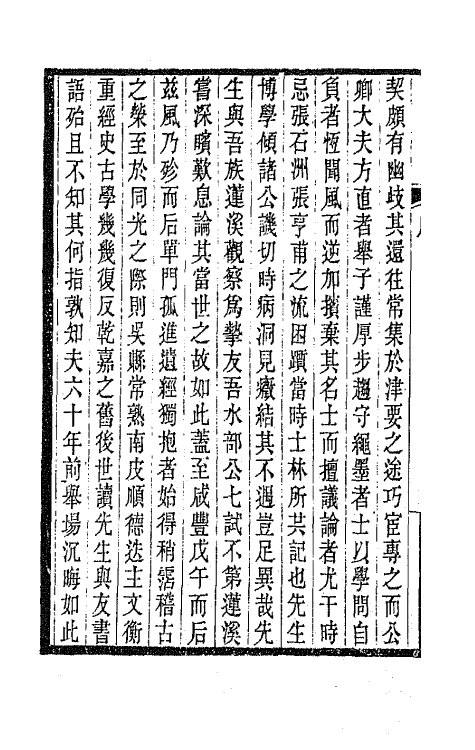 契頗有幽歧其還往常集於津要之途巧宦專之而公
卿大夫方直者舉子謹厚步趨守繩墨者士以學問自
負者恆聞風而逆加擯棄其名士而擅議論者尤干時
忌張石洲張亨甫之流困躓當時士林所共記也先生
博學傾諸公譏切時病洞見癥結其不遇豈足異哉先
生與吾族蓮溪觀察為摯友吾水部公七試不第蓮溪
嘗深矉歎息論其當世之故如此蓋至咸豐戊午而后
茲風乃殄而后單門孤進遺經獨抱者始得稍霑稽古
之榮至於同光之際則吳縣常熟南皮順德迭主文衡
重經史古學幾幾復反乾嘉之舊後世讀先生與友書
語殆且不知其何指敦知夫六十年前舉場沉晦如此